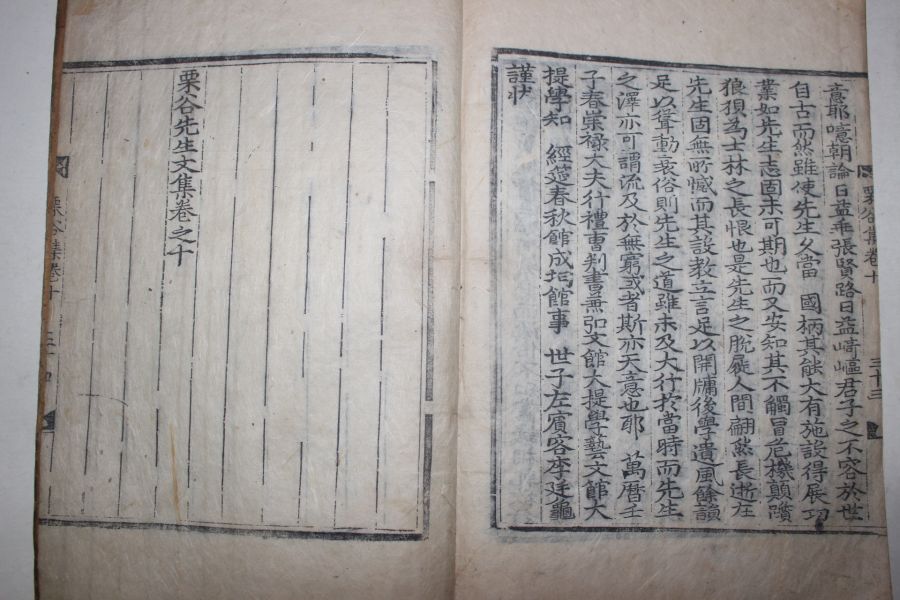 意耶噫朝論日益乖張賢路日益崎嶇君子之不容於世
自古而然雖使先生久當 國柄其能大有施設得展功
業如先生志固未可期也而又安知其不觸冒危機顚躓
狼狽為士林之長恨也是先生之脫屣人間翩然長逝在
先生固無所憾而其設教立言足以開牖後學遺風餘韻
足以聳動衰俗則先生之道雖未及大行於當時而先生
之澤亦可謂流及於無窮或者斯亦天意也耶 萬曆壬
子春崇祿大夫行禮曹判書兼弘文館大提學藝文館大
提學知 經筵春秋館成均館事 世子左賓客李廷龜
謹狀
栗谷集卷十
三十三
栗谷先生文集卷之十
栗谷集卷十
三十四